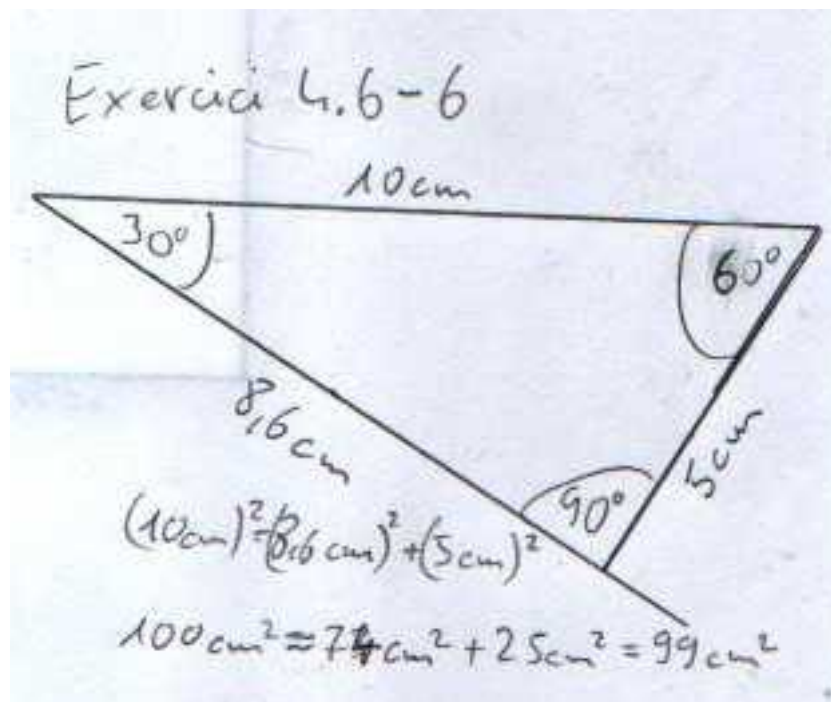 Exercici 4.6-6
10cm
30°
60°
8,6cm
5cm
90°
(10cm)²=(8,6cm)²+(5cm)²
100cm²≈74cm²+25cm²=99cm²